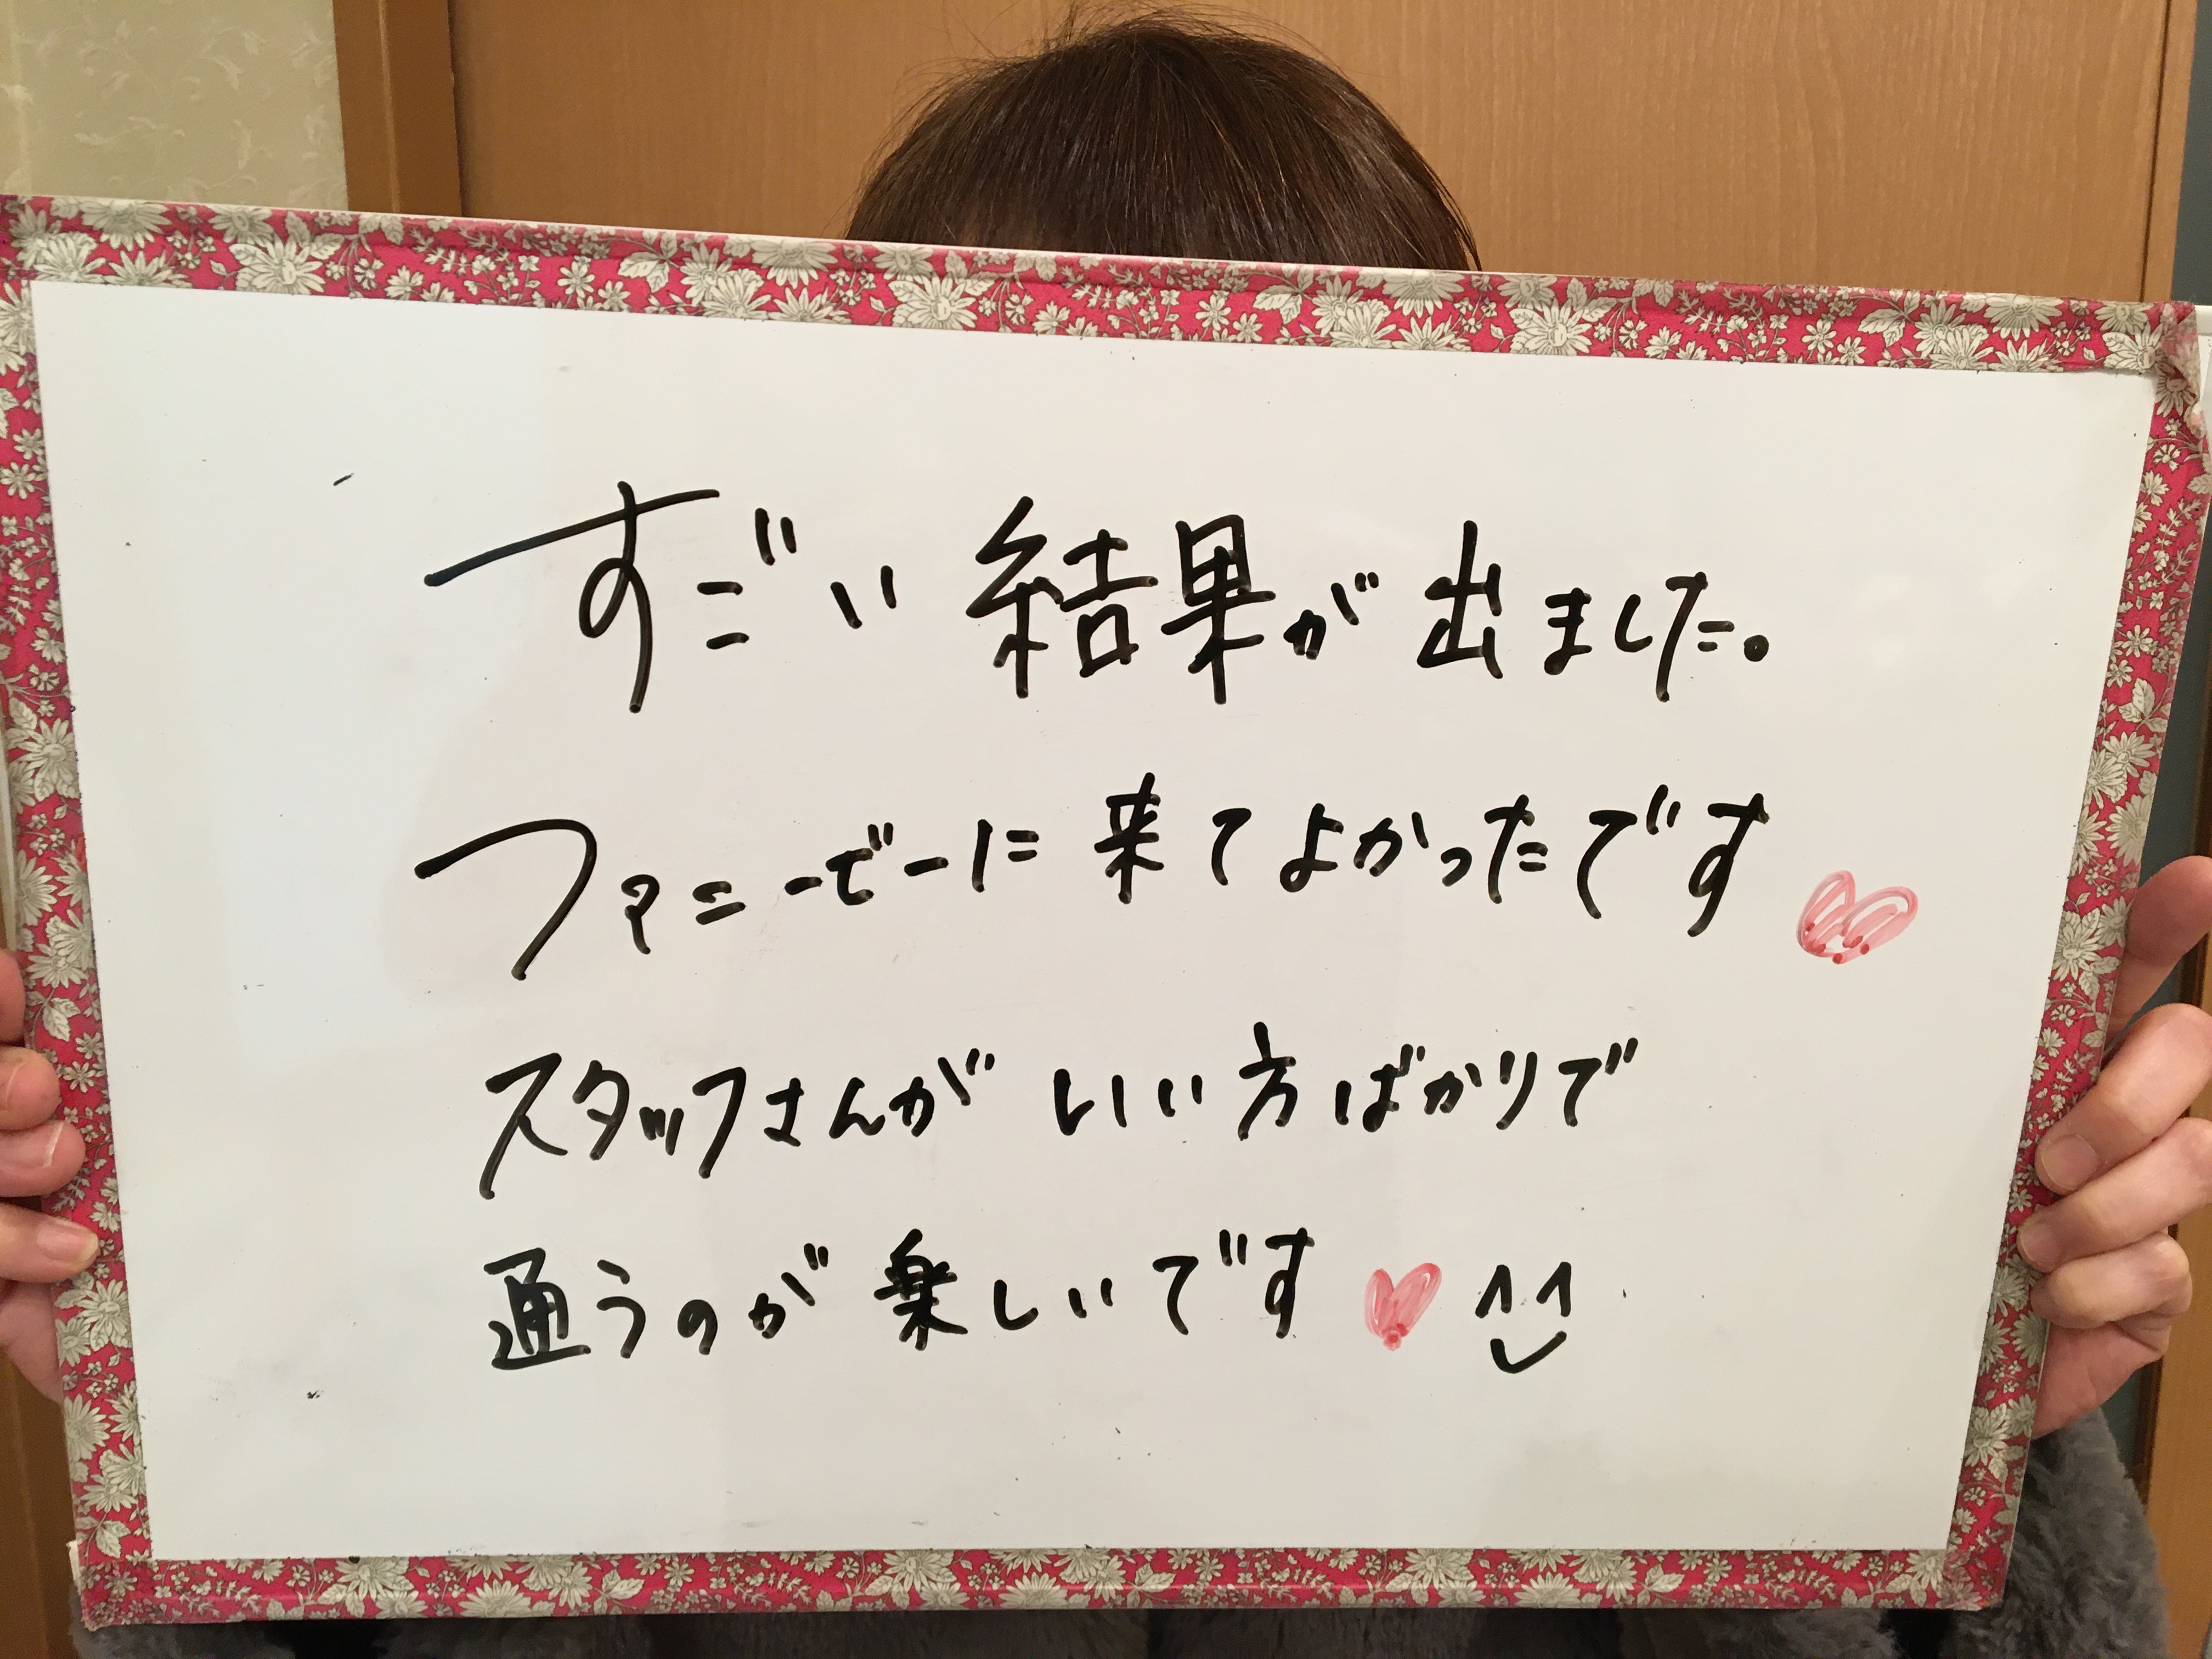 すごい結果が出ました。
ファニービーに来てよかったです
スタッフさんがいい方ばかりで
通うのが楽しいです